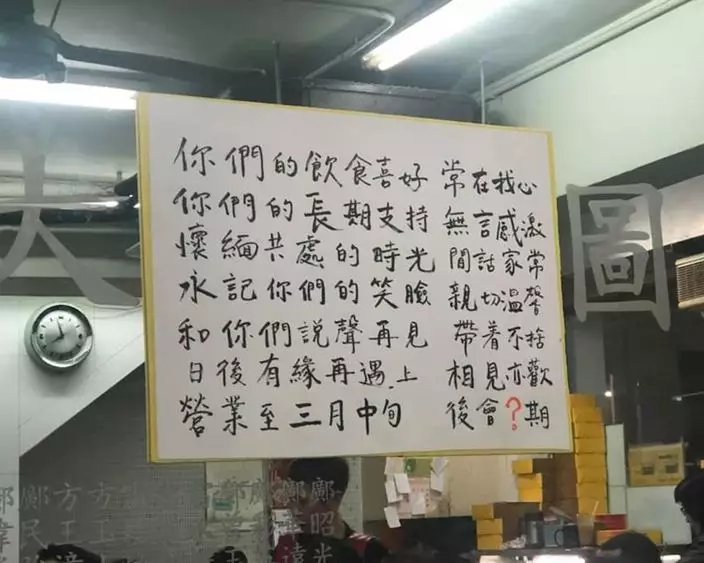 你們的飲食喜好 常在我心
你們的長期支持 無言感激
懷緬共處的時光 間話家常
永記你們的笑臉 親切溫馨
和你們說聲再見 帶着不捨
日後有緣再遇上 相見亦歡
營業至三月中旬 後會?期
圖